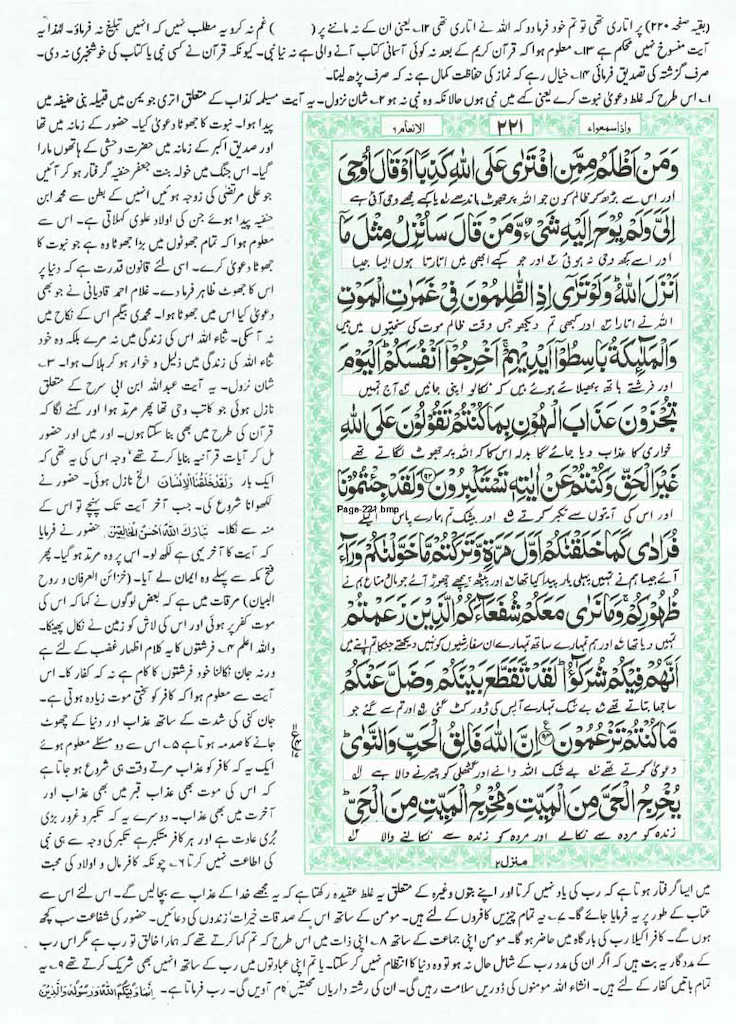 (بقیہ صفحہ ۲۲۰) پر اتاری تھی تو تم خود فرما دو کہ اللہ نے اتاری تھی ۱۲؎ یعنی ان کے نہ ماننے پر ( ) غم نہ کرو یہ مطلب نہیں کہ انہیں تبلیغ نہ فرماؤ۔ لہذا یہ
آیت منسوخ نہیں محکم ہے ۱۳؎ معلوم ہوا کہ قرآن کریم کے بعد نہ کوئی آسمانی کتاب آنے والی ہے نہ نیا نبی۔ کیونکہ قرآن نے کسی نبی یا کتاب کی خوشخبری نہ دی۔
صرف گزشتہ کی تصدیق فرمائی ۱۴؎ خیال رہے کہ نماز کی حفاظت کمال ہے نہ کہ صرف پڑھ لینا۔
۱؎ اس طرح کہ غلط دعویٰ نبوت کرے یعنی کہے میں نبی ہوں حالانکہ وہ نبی نہ ہو ۲؎ شان نزول۔ یہ آیت مسیلمہ کذاب کے متعلق اتری جو یمن میں قبیلہ بنی حنیفہ میں
واذاسمعوا ۷
۲۲۱
الانعام ۶
وَمَنْ اَظْلَمُ مِمَّنِ افْتَرٰى عَلَى اللّٰهِ كَذِبًا اَوْ قَالَ اُوْحِیَ
اور اس سے بڑھ کر ظالم کون جو اللہ پر جھوٹ باندھے یا کہے مجھے وحی آئی ہے
اِلَیَّ وَلَمْ یُوْحَ اِلَیْهِ شَیْءٌ وَّمَنْ قَالَ سَاُنْزِلُ مِثْلَ مَاۤ
اور اسے کچھ وحی نہ ہوئی اور جو کہے ابھی میں اتارتا ہوں ایسا جیسا
اَنْزَلَ اللّٰهُ وَلَوْ تَرٰۤى اِذِ الظّٰلِمُوْنَ فِیْ غَمَرٰتِ الْمَوْتِ
اللہ نے اتارا اور کبھی تم دیکھو جس وقت ظالم موت کی سختیوں میں ہیں
وَالْمَلٰٓىِٕكَةُ بَاسِطُوْۤا اَیْدِیْهِمْ اَخْرِجُوْۤا اَنْفُسَكُمْ اَلْیَوْمَ
اور فرشتے ہاتھ پھیلائے ہوئے ہیں کہ نکالو اپنی جانیں آج تمہیں
تُجْزَوْنَ عَذَابَ الْهُوْنِ بِمَا كُنْتُمْ تَقُوْلُوْنَ عَلَى اللّٰهِ
خواری کا عذاب دیا جائے گا بدلہ اس کا کہ اللہ پر جھوٹ لگاتے تھے
غَیْرَ الْحَقِّ وَكُنْتُمْ عَنْ اٰیٰتِهٖ تَسْتَكْبِرُوْنَ ۹۳ وَلَقَدْ جِئْتُمُوْنَا
Page-221.bmp
اور اس کی آیتوں سے تکبر کرتے اور بیشک تم ہمارے پاس اکیلے
فُرَادٰى كَمَا خَلَقْنٰكُمْ اَوَّلَ مَرَّةٍ وَّتَرَكْتُمْ مَّا خَوَّلْنٰكُمْ وَرَآءَ
آئے جیسا ہم نے تمہیں پہلی بار پیدا کیا تھا اور پیٹھ پیچھے چھوڑ آئے جو مال متاع ہم نے
ظُهُوْرِكُمْ وَمَا نَرٰى مَعَكُمْ شُفَعَآءَكُمُ الَّذِیْنَ زَعَمْتُمْ
تمہیں دیا تھا اور ہم تمہارے ساتھ تمہارے ان سفارشیوں کو نہیں دیکھتے جن کا تم اپنے میں
اَنَّهُمْ فِیْكُمْ شُرَكٰٓؤُا لَقَدْ تَّقَطَّعَ بَیْنَكُمْ وَضَلَّ عَنْكُمْ
ساجھا بتاتے تھے بے شک تمہارے آپس کی ڈور کٹ گئی اور تم سے گئے جو
مَّا كُنْتُمْ تَزْعُمُوْنَ ۹۴ اِنَّ اللّٰهَ فَالِقُ الْحَبِّ وَالنَّوٰى
دعویٰ کرتے تھے بے شک اللہ دانے اور گٹھلی کو چیرنے والا ہے
یُخْرِجُ الْحَیَّ مِنَ الْمَیِّتِ وَمُخْرِجُ الْمَیِّتِ مِنَ الْحَیِّ
زندہ کو مردہ سے نکالے اور مردہ کو زندہ سے نکالنے والا
منزل ۲
پیدا ہوا۔ نبوت کا جھوٹا دعویٰ کیا۔ حضور کے زمانہ میں تھا
اور صدیق اکبر کے زمانہ میں حضرت وحشی کے ہاتھوں مارا
گیا۔ اس جنگ میں خولہ بنت جعفر حنفیہ گرفتار ہو کر آئیں
جو علی مرتضی کی زوجہ ہوئیں انہیں کے بطن سے محمد ابن
حنفیہ پیدا ہوئے جن کی اولاد علوی کہلاتی ہے۔ اس سے
معلوم ہوا کہ تمام جھوٹوں میں بڑا جھوٹا وہ ہے جو نبوت کا
جھوٹا دعویٰ کرے۔ اسی لئے قانون قدرت ہے کہ دنیا پر
اس کا جھوٹ ظاہر فرما دے۔ غلام احمد قادیانی نے جو بھی
دعویٰ کیا اس میں جھوٹا ہوا۔ محمدی بیگم اس کے نکاح میں
نہ آسکی۔ ثناء اللہ اس کی زندگی میں نہ مرے بلکہ وہ خود
ثناء اللہ کی زندگی میں ذلیل و خوار ہو کر ہلاک ہوا۔ ۳؎
شان نزول۔ یہ آیت عبداللہ ابن ابی سرح کے متعلق
نازل ہوئی جو کاتب وحی تھا پھر مرتد ہوا اور کہنے لگا کہ
قرآن کی طرح میں بھی بنا سکتا ہوں۔ اور میں اور حضور
مل کر آیات قرآنیہ بنایا کرتے تھے' وجہ اس کی یہ تھی کہ
ایک بار وَلَقَدْ خَلَقْنَا الْاِنْسَانَ الخ نازل ہوئی۔ حضور نے
لکھوانا شروع کی۔ جب آخر آیت تک پہنچے تو اس کے
منہ سے نکلا۔ تَبَارَكَ اللّٰهُ اَحْسَنُ الْخَالِقِیْنَ۔ حضور نے فرمایا
کہ آیت کا آخر یہی ہے لکھ لو۔ اس پر وہ مرتد ہو گیا۔ پھر
فتح مکہ سے پہلے وہ ایمان لے آیا۔ (خزائن العرفان و روح
البیان) مرقات میں ہے کہ بعض لوگوں نے کہا کہ اس کی
موت کفر پر ہوئی اور اس کی لاش کو زمین نے نکال پھینکا۔
واللہ اعلم ۴؎ فرشتوں کا یہ کلام اظہار غضب کے لئے ہے
ورنہ جان نکالنا خود فرشتوں کا کام ہے نہ کہ کفار کا۔ اس
آیت سے معلوم ہوا کہ کافر کو سختی موت زیادہ ہوتی ہے۔
جان کنی کی شدت کے ساتھ عذاب اور دنیا کے چھوٹ
جانے کا صدمہ ہوتا ہے ۵؎ اس سے دو مسئلے معلوم ہوئے
ایک یہ کہ کافر کو عذاب مرتے وقت ہی شروع ہو جاتا ہے
کہ اس کی موت بھی عذاب قبر میں بھی عذاب اور
آخرت میں بھی عذاب۔ دوسرے یہ کہ تکبر و غرور بڑی
بری عادت ہے اور ہر کافر متکبر ہے تکبر کی وجہ سے ہی نبی
کی اطاعت نہیں کرتا ۶؎ چونکہ کافر مال و اولاد کی محبت
میں ایسا گرفتار ہوتا ہے کہ رب کی یاد نہیں کرتا اور اپنے بتوں وغیرہ کے متعلق یہ غلط عقیدہ رکھتا ہے کہ یہ مجھے خدا کے عذاب سے بچالیں گے۔ اس لئے اس سے
عتاب کے طور پر یہ فرمایا جائے گا۔ ۷؎ یہ تمام چیزیں کافروں کے لئے ہیں۔ مومن کے ساتھ اس کے صدقات خیرات' زندوں کی دعائیں۔ حضور کی شفاعت سب کچھ
ہوں گے۔ کافر اکیلا رب کی بارگاہ میں حاضر ہو گا۔ مومن اپنی جماعت کے ساتھ ۸؎ اپنی ذات میں اس طرح کہ تم کہا کرتے تھے کہ ہمارا خالق تو رب ہے مگر اس رب
کے مددگار یہ بت ہیں کہ اگر ان کی مدد رب کے شامل حال نہ ہو تو وہ دنیا کا انتظام نہیں کر سکتا۔ یا تم اپنی عبادتوں میں رب کے ساتھ انہیں بھی شریک کرتے تھے ۹؎ یہ
تمام باتیں کفار کے لئے ہیں۔ انشاء اللہ مومنوں کی ڈوریں سلامت رہیں گی۔ ان کی رشتہ داریاں محبتیں کام آویں گی۔ رب فرماتا ہے۔ اِنَّمَا وَلِیُّكُمُ اللّٰهُ وَرَسُوْلُهٗ وَالَّذِیْنَ